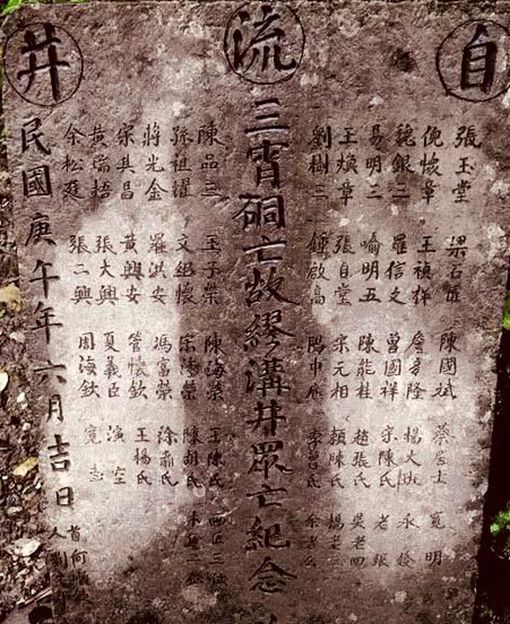 自流井
張玉堂 陳國斌 蔡居士 寬明
倪懷章 王禎祥 楊大
魏銀二 羅信文 曾國祥 宗陳氏 老張
易明三 喻明五 陳能桂 趙張氏 吳老四
王煥章 張自堂 宋元相 賴陳氏 楊老
劉樹三 鍾啟高 李曾氏 余老
三霄硐亡故繆溝井眾亡紀念
陳品三 王子榮 陳海榮 王陳氏
孫祖濯 文紹懷 陳胡氏
蔣光金 羅洪安 馮富榮 徐蕭氏
宋其昌 黃興安 管懷欽 王楊氏
黃瑞梧 張大興 夏義臣 演空
余松廷 張二興 周海欽 寬志
民國庚午年六月吉日
首何
人劉文